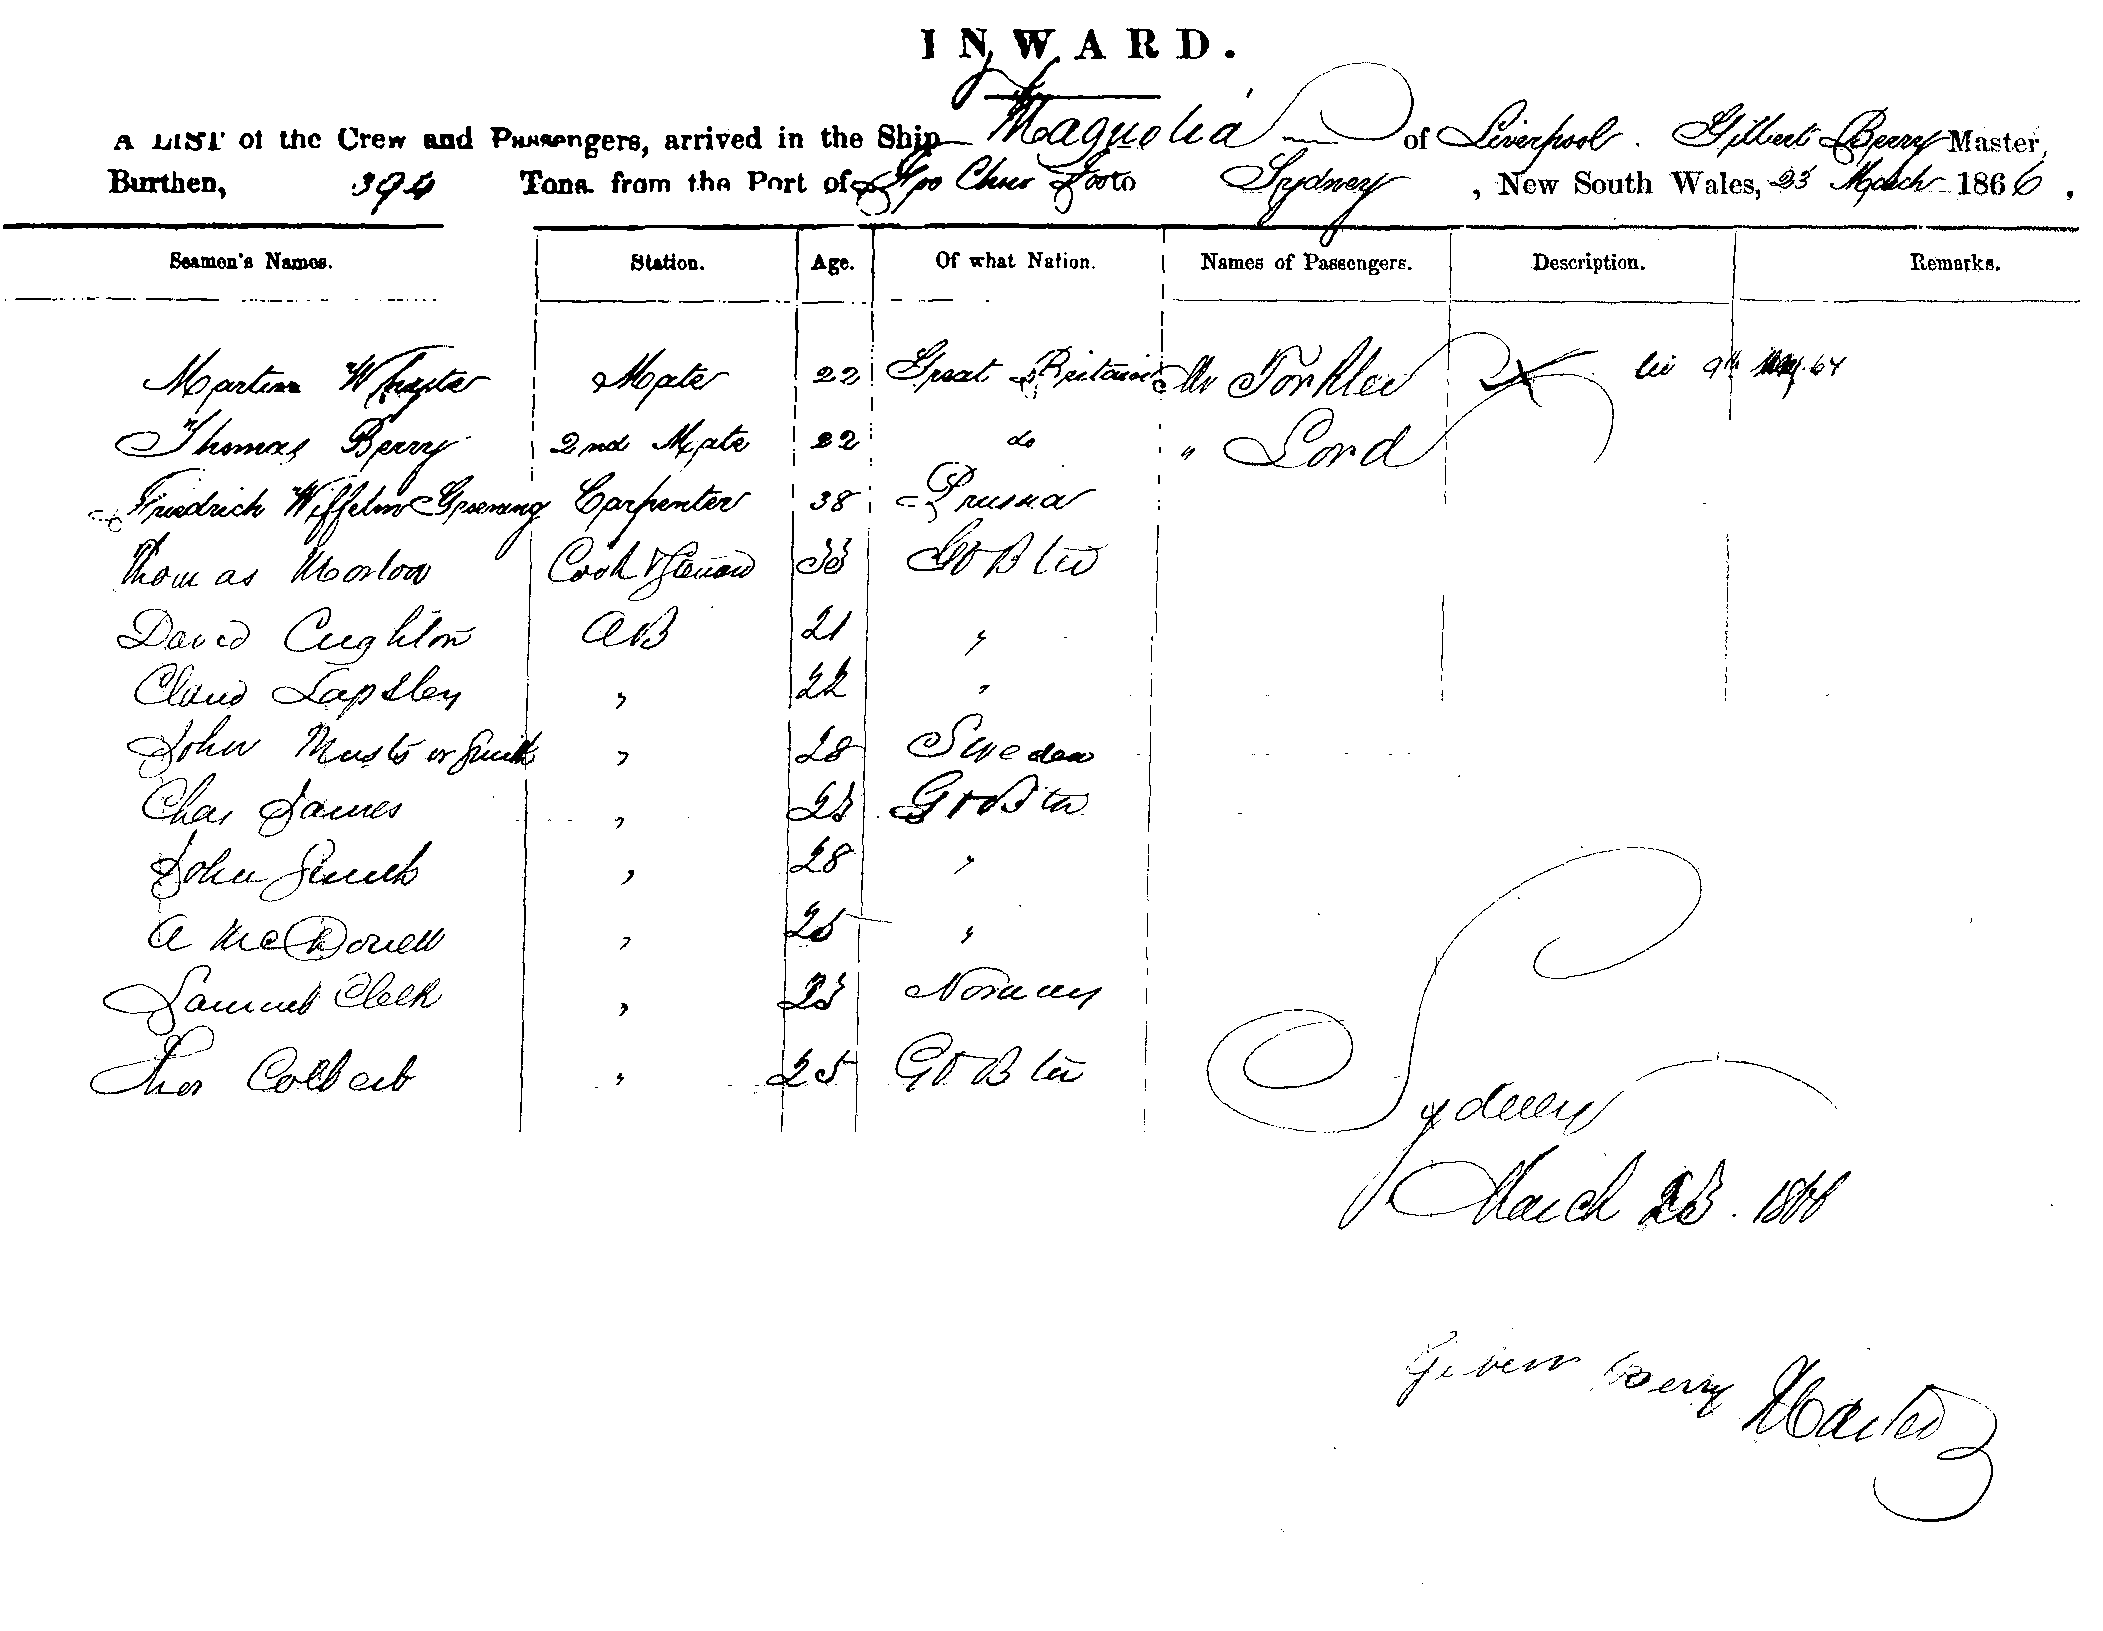 INWARD.
A LIST of the Crew and Passengers, arrived in the Ship Magnolia of Liverpool. Gilbert Berry Master,
Burthen, 394 Tons from the Port of Foo Choo Foo to Sydney, New South Wales, 23 March 1866.
Seamen's Names. Station. Age. Of what Nation. Names of Passengers. Description. Remarks.
Martin Mate 22 Great Britain Mr
Thomas Berry 2nd Mate 22 do " Lord
Friedrich Wilhelm Groening Carpenter 38 Prussia
Thomas Cook & Steward 33 Gt Btn
David Cughton AB 21 "
Claud Lapsley " 22 "
John or Smith " 28 Sweden
Chas James " 23 Gt Btn
John Smith " 28 "
A McDonell " 25 "
Samuel " 23 Norway
Thos Colbert " 25 Gt Btn
Sydney
March 23. 1866
Gilbert Berry Master